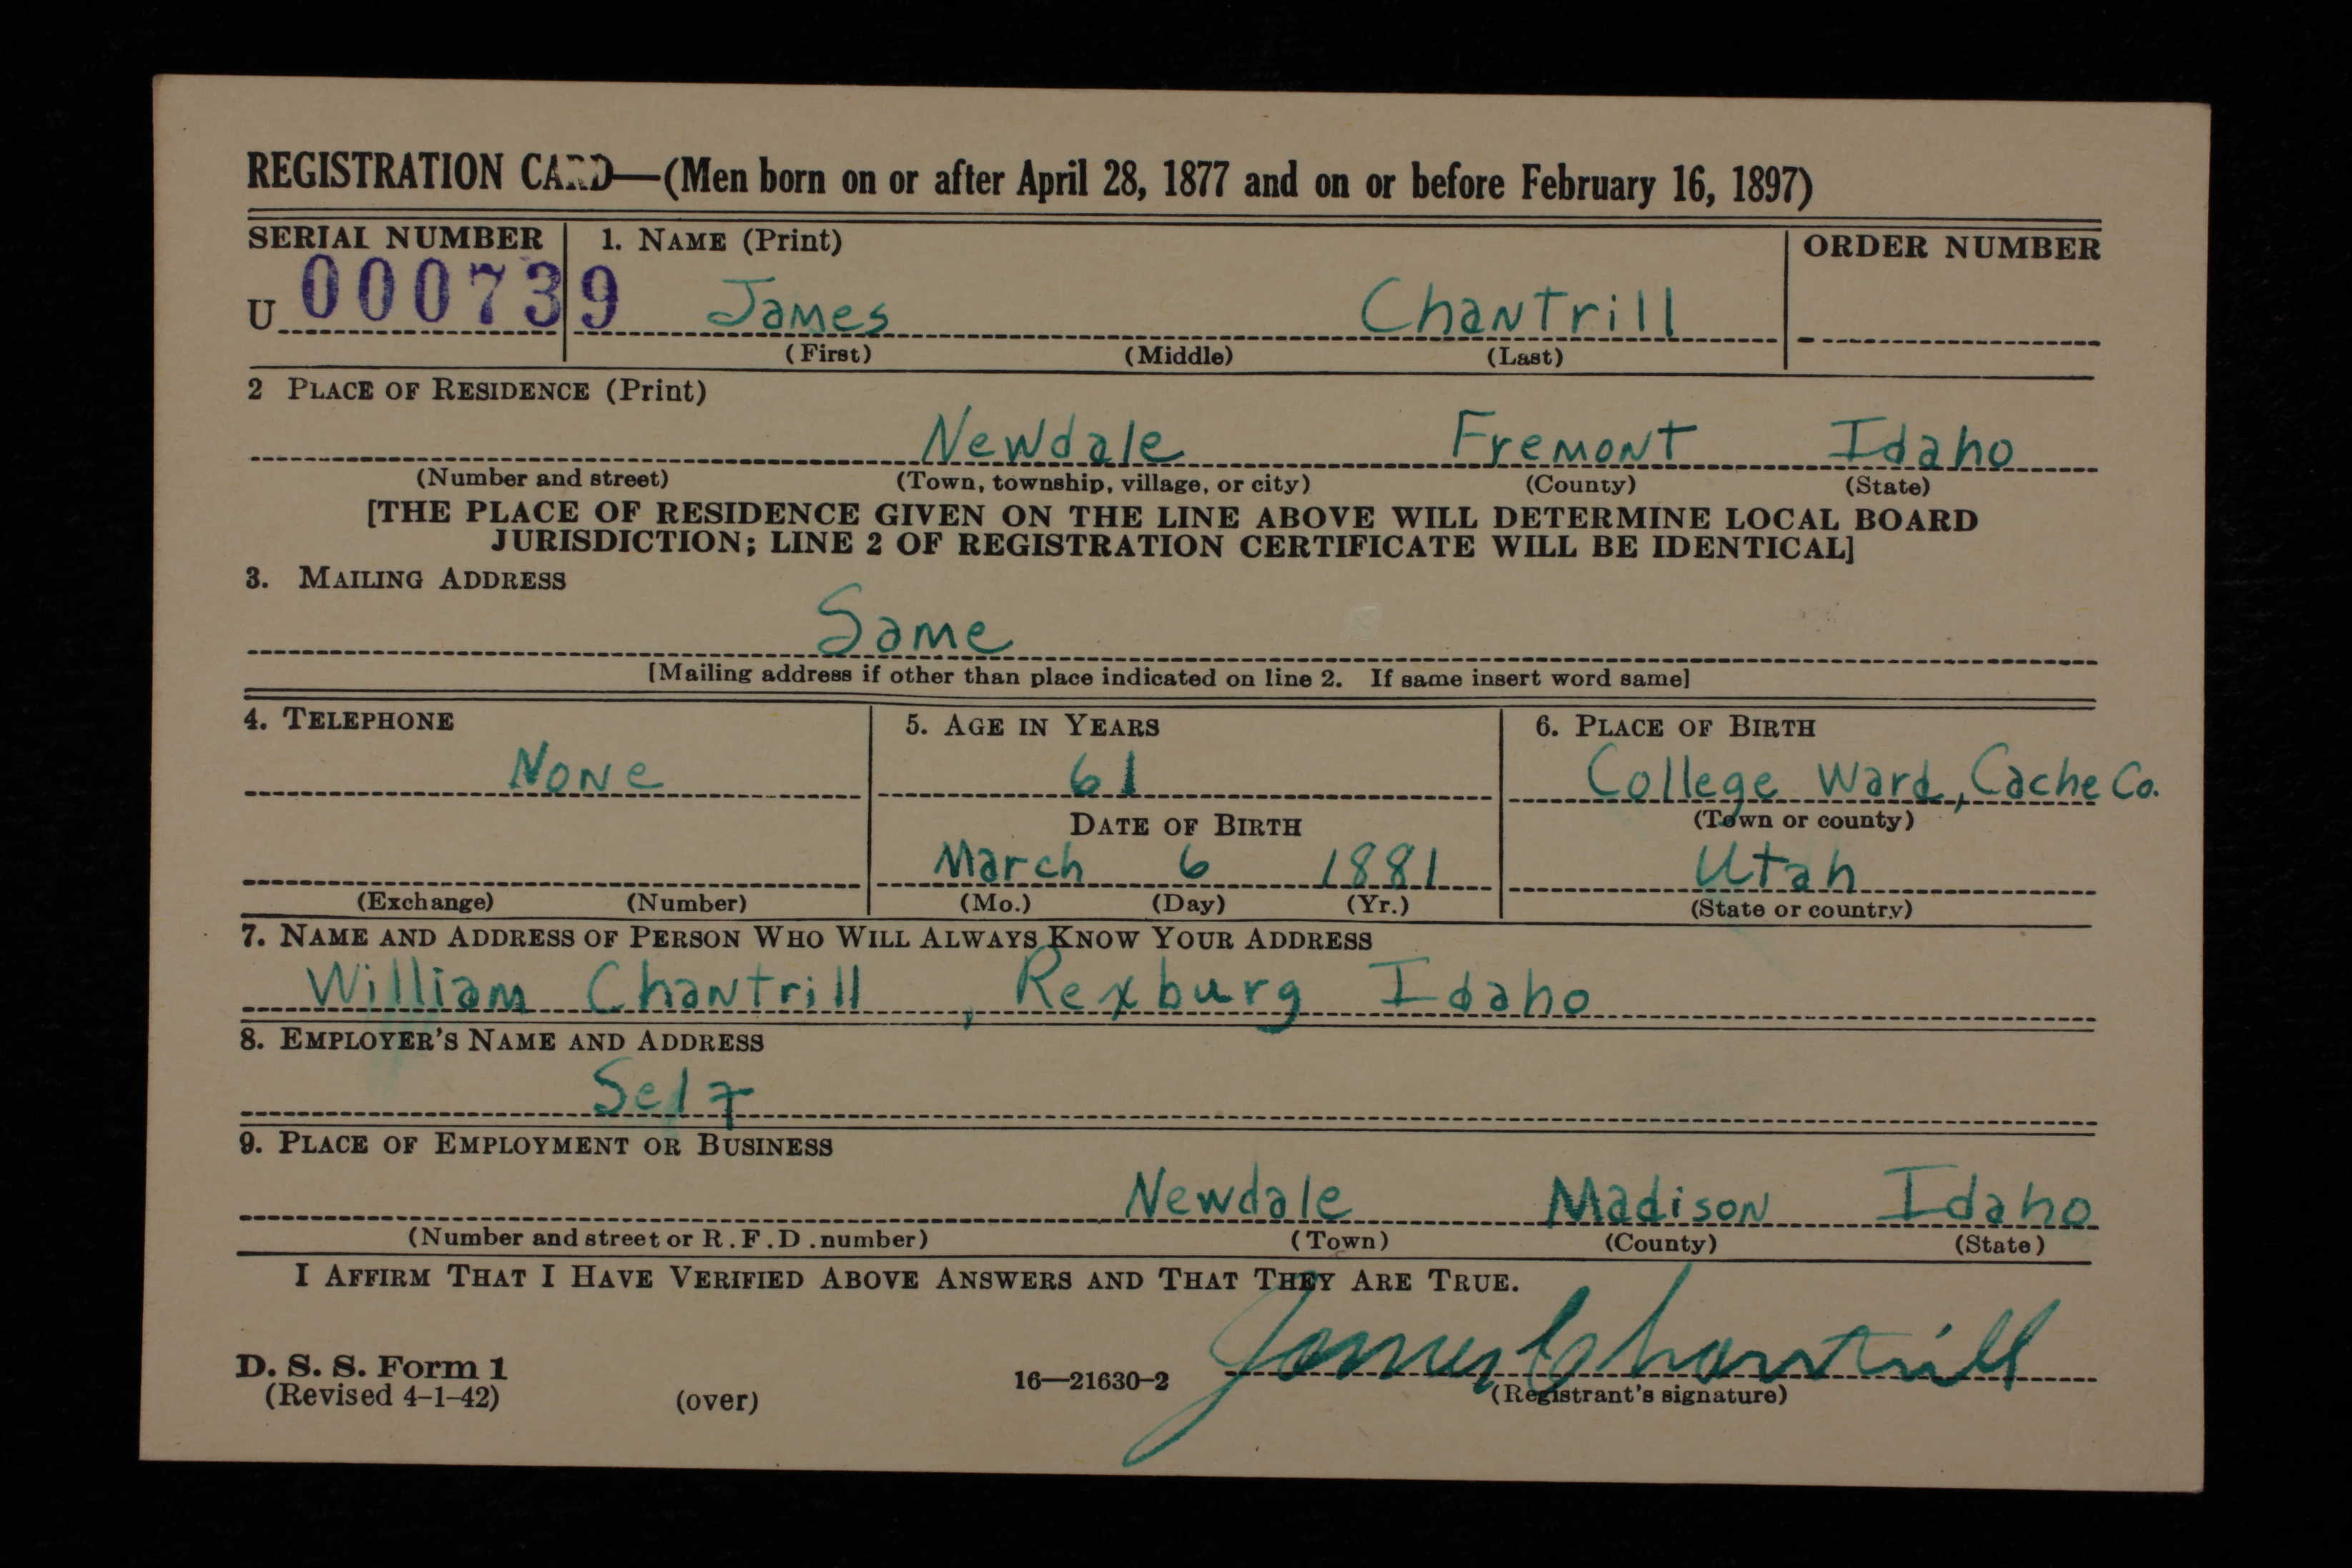 REGISTRATION CARD—(Men born on or after April 28, 1877 and on or before February 16, 1897)
SERIAL NUMBER 1. NAME (Print) ORDER NUMBER
U 000739 James Chantrill
(First) (Middle) (Last)
2 PLACE OF RESIDENCE (Print)
Newdale Fremont Idaho
(Number and street) (Town, township, village, or city) (County) (State)
[THE PLACE OF RESIDENCE GIVEN ON THE LINE ABOVE WILL DETERMINE LOCAL BOARD
JURISDICTION; LINE 2 OF REGISTRATION CERTIFICATE WILL BE IDENTICAL]
3. MAILING ADDRESS
Same
[Mailing address if other than place indicated on line 2. If same insert word same]
4. TELEPHONE 5. AGE IN YEARS 6. PLACE OF BIRTH
None 61 College Ward, Cache Co.
DATE OF BIRTH (Town or county)
March 6 1881 Utah
(Exchange) (Number) (Mo.) (Day) (Yr.) (State or country)
7. NAME AND ADDRESS OF PERSON WHO WILL ALWAYS KNOW YOUR ADDRESS
William Chantrill, Rexburg Idaho
8. EMPLOYER'S NAME AND ADDRESS
Self
9. PLACE OF EMPLOYMENT OR BUSINESS
Newdale Madison Idaho
(Number and street or R.F.D. number) (Town) (County) (State)
I AFFIRM THAT I HAVE VERIFIED ABOVE ANSWERS AND THAT THEY ARE TRUE.
James Chantrill
D. S. S. Form 1 16—21630-2 (Registrant's signature)
(Revised 4-1-42) (over)